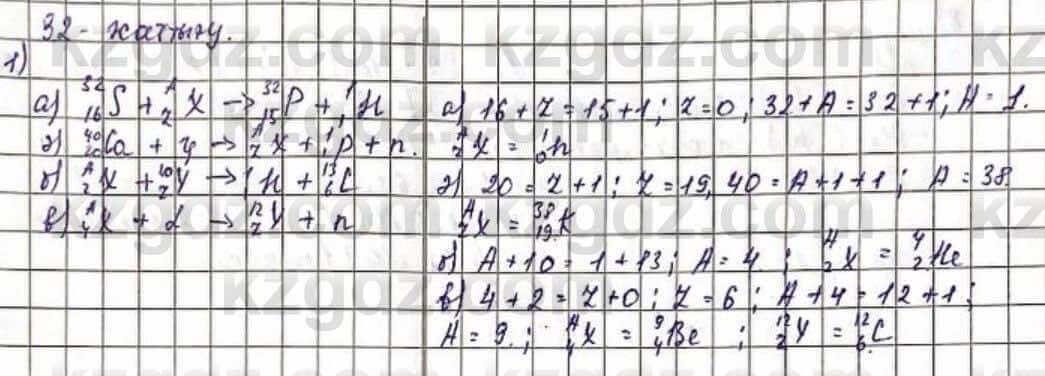 32- жаттығу.
1)
а) ³²₁₆S + ᴬ_Z X → ³²₁₅P + ¹₁H
ә) ⁴⁰₂₀Ca + γ → ᴬ_Z X + ¹₁p + n.
б) ᴬ_Z X + ¹⁰_Z Y → ¹₁H + ¹³₆C
в) ᴬ₄X + α → ¹²_Z Y + n
а) 16 + Z = 15 + 1; Z = 0; 32 + A = 32 + 1; A = 1.
ᴬ_Z X = ¹₀n
ә) 20 = Z + 1; Z = 19, 40 = A + 1 + 1; A = 38
ᴬ_Z X = ³⁸₁₉K
б) A + 10 = 1 + 13; A = 4. ; ᴬ₂X = ⁴₂He
в) 4 + 2 = Z + 0; Z = 6; A + 4 = 12 + 1;
A = 9.; ᴬ₄X = ⁹₄Be ; ¹²_Z Y = ¹²₆C
kzgdz.com